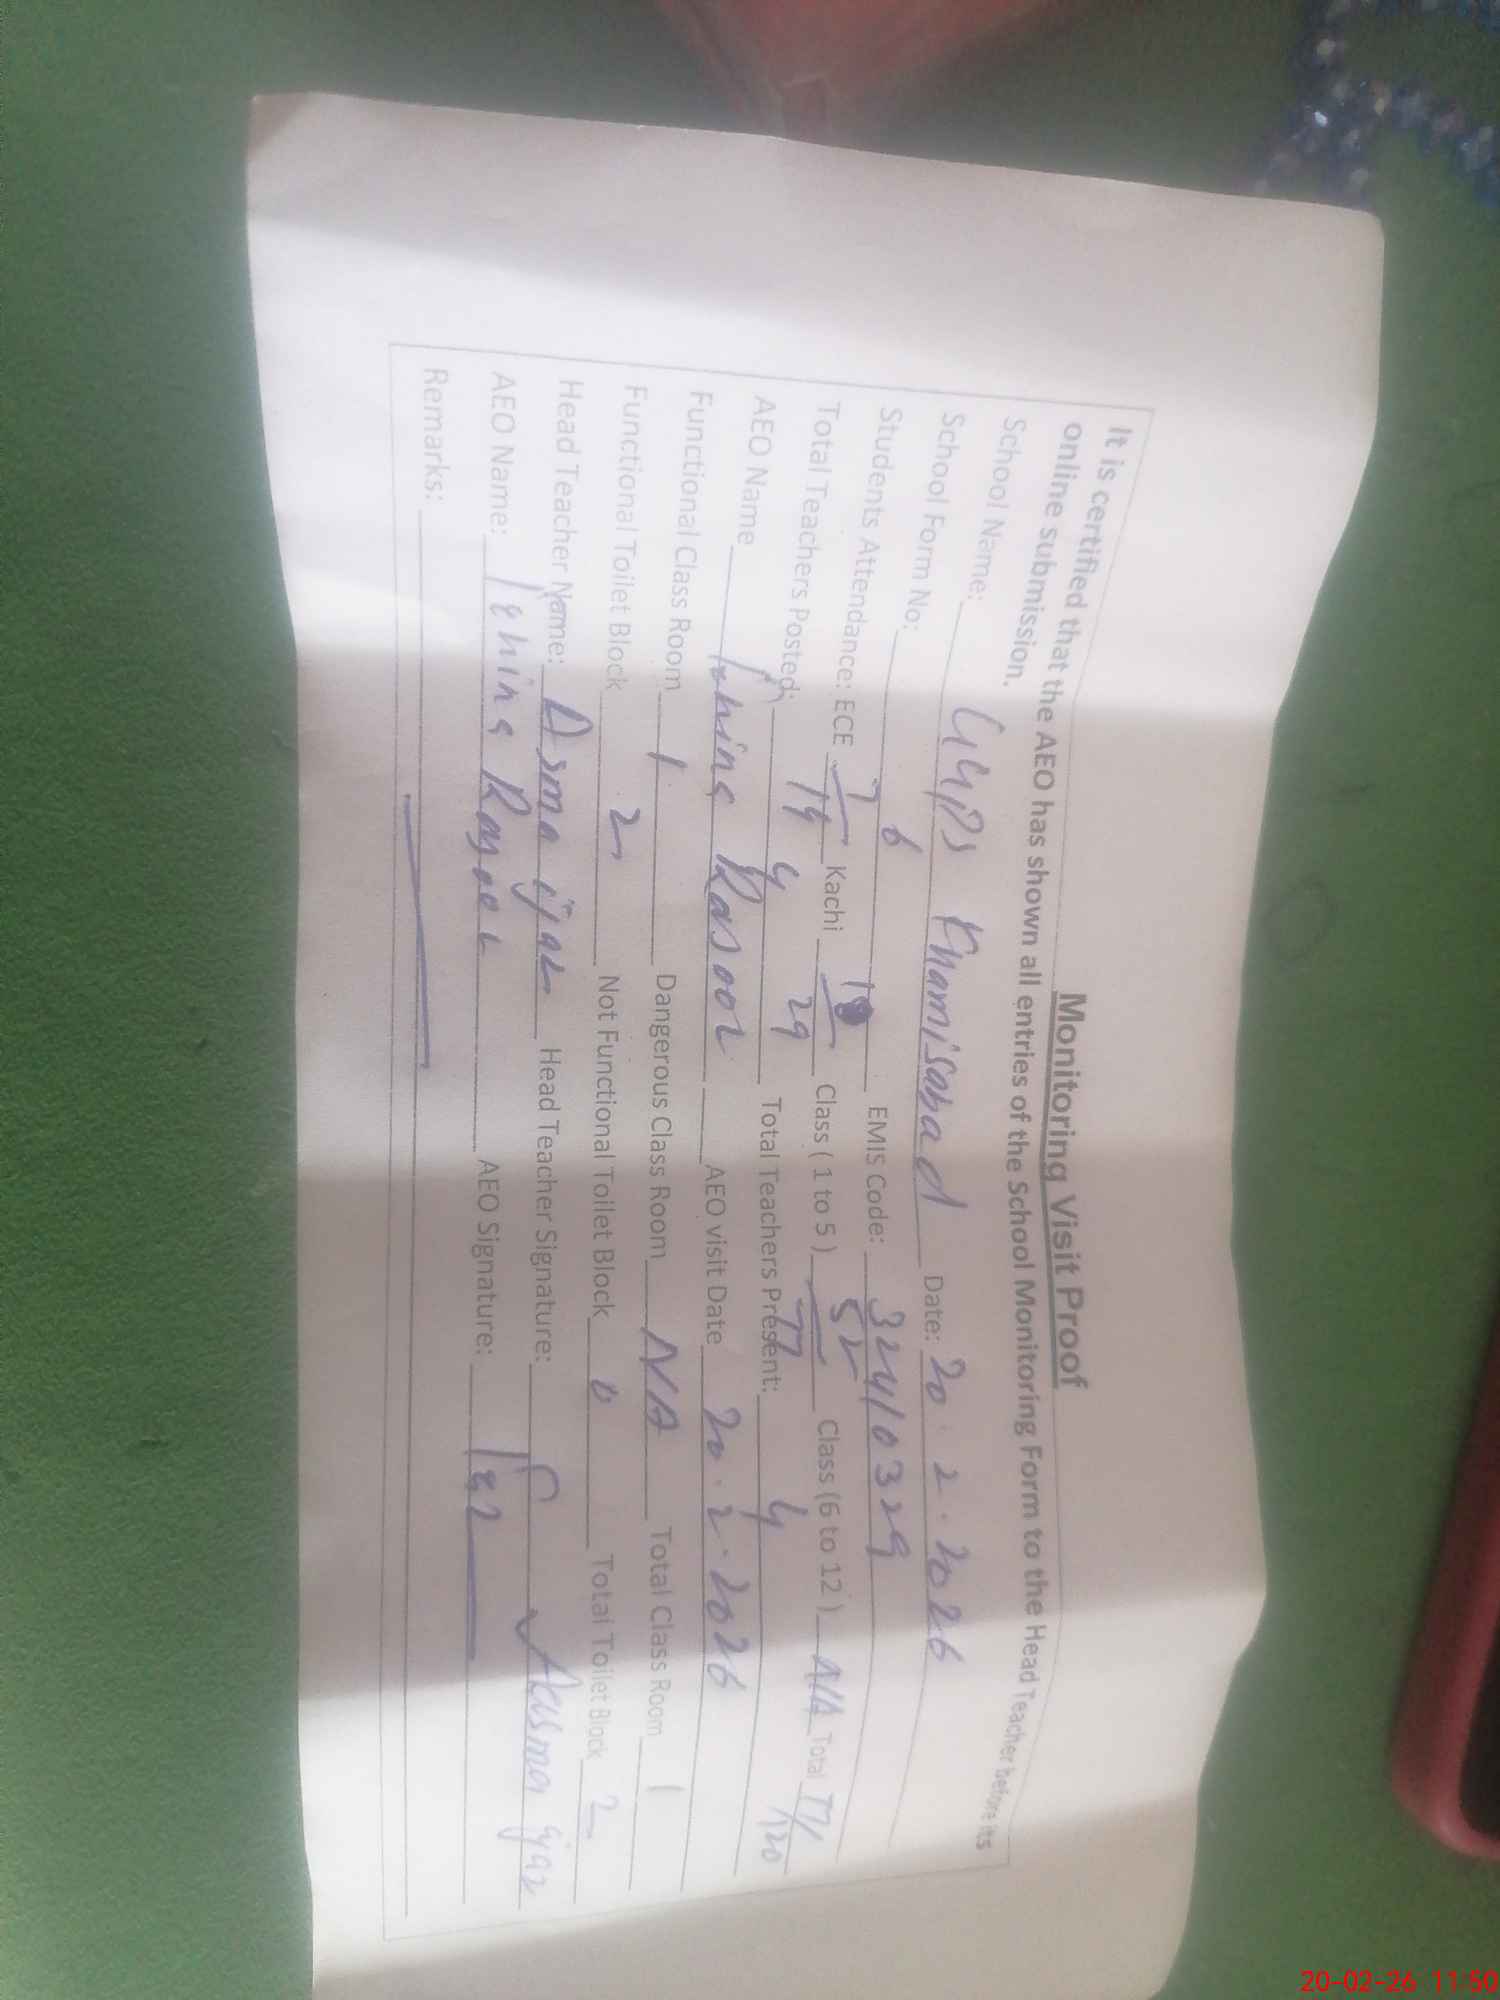 Monitoring Visit Proof
It is certified that the AEO has shown all entries of the School Monitoring Form to the Head Teacher before its
online submission.
School Name: GGPS Khamisabad Date: 20.2.2026
School Form No: 6 EMIS Code: 32410329
Students Attendance: ECE 7/14 Kachi 18/29 Class ( 1 to 5 ) 52/77 Class (6 to 12 ) N/A Total 77/120
Total Teachers Posted: 4 Total Teachers Present: 4
AEO Name Rasool AEO visit Date 20.2.2026
Functional Class Room 1 Dangerous Class Room N/A Total Class Room 1
Functional Toilet Block 2 Not Functional Toilet Block 0 Total Toilet Block 2
Head Teacher Name: Asma ijaz Head Teacher Signature: Aasma ijaz
AEO Name: Rasool AEO Signature:
Remarks:
20-02-26 11:50